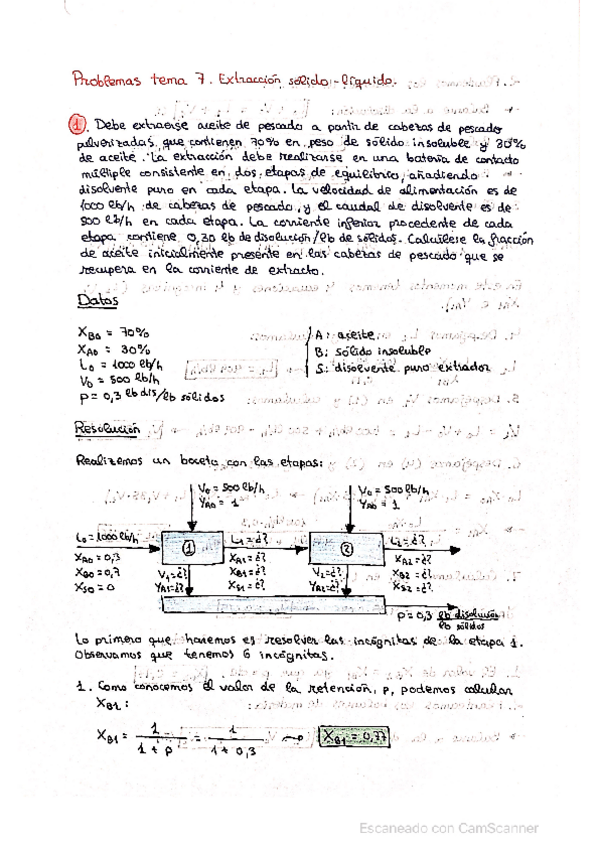 Problemas tema 7. Extracción sólido-líquido.
1. Debe extraerse aceite de pescado a partir de cabezas de pescado
pulverizadas, que contienen 70% en peso de sólido insoluble y 30%
de aceite. La extracción debe realizarse en una batería de contacto
múltiple consistente en dos etapas de equilibrio, añadiendo
disolvente puro en cada etapa. La velocidad de alimentación es de
1000 lb/h de cabezas de pescado, y el caudal de disolvente es de
500 lb/h en cada etapa. La corriente inferior procedente de cada
etapa contiene 0,30 lb de disolución/lb de sólidos. Calcúlese la fracción
de aceite inicialmente presente en las cabezas de pescado que se
recupera en la corriente de extracto.
Datos
XB0 = 70%
XA0 = 30%
L0 = 1000 lb/h
V0 = 500 lb/h
p = 0,3 lb dis/lb sólidos
A: aceite
B: sólido insoluble
S: disolvente puro extractor
Resolución
Realizemos un boceto con las etapas:
V0 = 500 lb/h
YA0 = 1
V0 = 500 lb/h
YA0 = 1
L0 = 1000 lb/h
XA0 = 0,3
XB0 = 0,7
XS0 = 0
1
L1 = ¿?
XA1 = ¿?
XB1 = ¿?
XS1 = ¿?
2
L2 = ¿?
XA2 = ¿?
XB2 = ¿?
XS2 = ¿?
V1 = ¿?
YA1 = ¿?
V2 = ¿?
YA2 = ¿?
p = 0,3 lb disolución
lb sólidos
Lo primero que haremos es resolver las incógnitas de la etapa 1.
Observamos que tenemos 6 incógnitas.
1. Como conocemos el valor de la retención, p, podemos calcular
XB1:
XB1 = 1/(1 + p) = 1/(1 + 0,3) → XB1 = 0,77
Escaneado con CamScanner